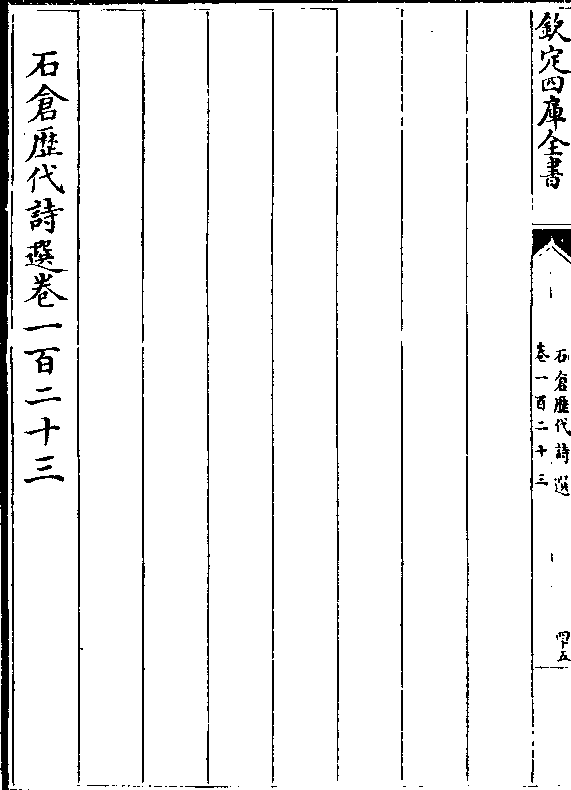 欽定四庫全書
石倉歷代詩選
卷一百二十三
四十五
石倉歷代詩選卷一百二十三